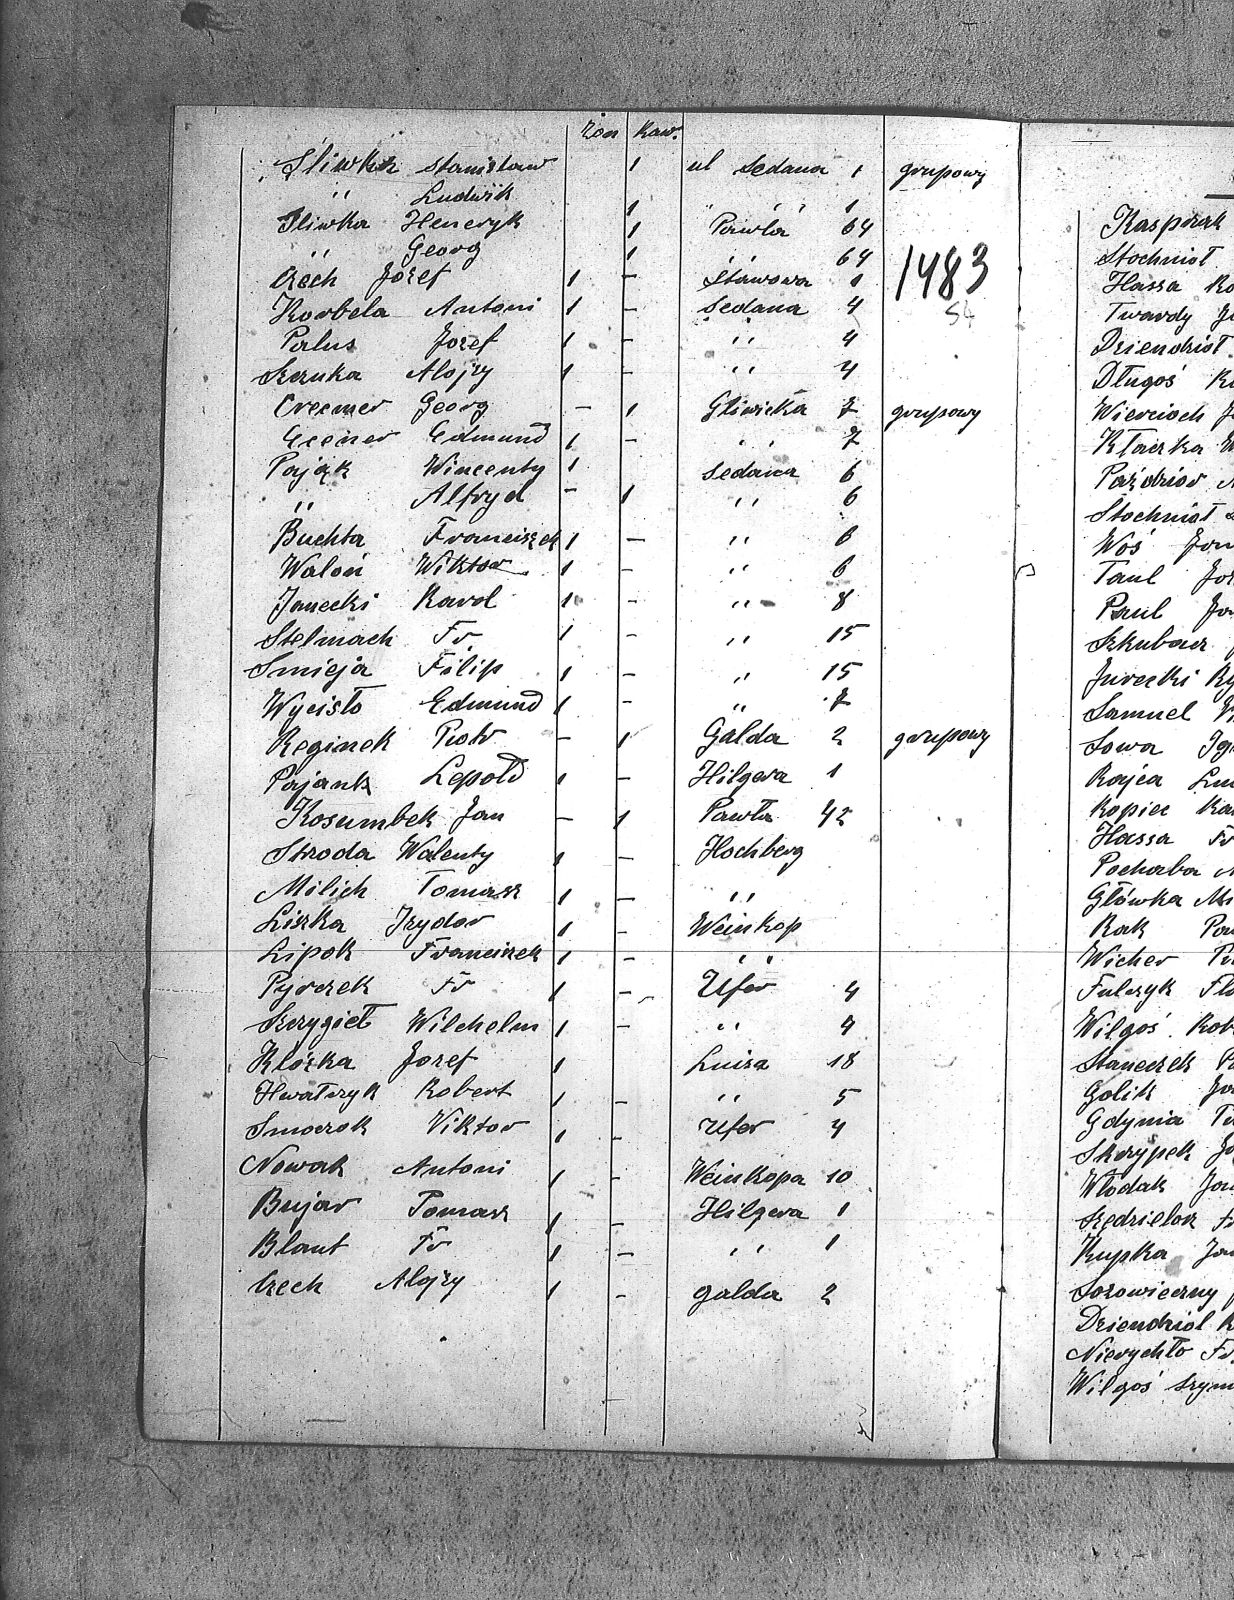 żon kaw.
Śliwka Stanisław 1 ul Sedana 1 grupowy
" Ludwik 1 " " " 1
Śliwka Henryk 1 Pawła 64
" Georg 1 " " 64
1483
54
Czech Jozef 1 - Stawowa 1
Korbela Antoni 1 - Sedana 4
Palus Jozef 1 - " 4
Szczuka Alojzy 1 - " 4
Creemer Georg - 1 Gliwicka 7 grupowy
Edmund 1 - " " 7
Pająk Wincenty 1 Sedana 6
" Alfryd - 1 " 6
Buchta Franciszek 1 - " 6
Waloń Wiktor 1 - " 6
Janecki Karol 1 - " 8
Stelmach Fr 1 - " 15
Smieja Filip 1 - " 15
Wycisło Edmund 1 - " 7
Reginek Piotr - 1 Galda 2 grupowy
Pajank Lepold 1 - Hilgera 1
Kosumbek Jan - 1 Pawła 42
Stroda Walenty 1 - Hochberg
Milich Tomasz 1 - "
Liszka Izydor 1 - Weinkop
Lipok Franciszek 1 - " "
Pyrczek Fr 1 - Ufer 4
Szczygieł Wilchelm 1 - " 4
Klozka Jozef 1 Luiza 18
Hwałczyk Robert 1 - " 5
Smoczok Viktor 1 - Ufer 4
Nowak Antoni 1 - Weinkopa 10
Bujar Tomasz 1 - Hilgera 1
Blaut Fr 1 - " " 1
Czech Alojzy 1 - galda 2
Kasprzak
Stochnioł
Hassa Ko
Twardy J
Dziendzioł
Długoś K
Wiercioch J
Kłaczka W
Paździor
Stochnioł
Woś Jon
Taul Joz
Paul Jo
Szkubacz
Jurecki Ry
Samuel W
Sowa Ig
Kajca Lu
Kopiec Ka
Hassa Fr
Pochaba
Główka Mi
Kak Pa
Wicher Pa
Fulczyk Fl
Wilgoś Rob
Staneczek Pa
Golik Jo
Gdynia Pa
Skrzypek Jo
Włodak Jon
Szędzielorz
Kupka Jon
Sozowieczny
Dziendziol R
Nierychło Fr
Wilgoś Szym